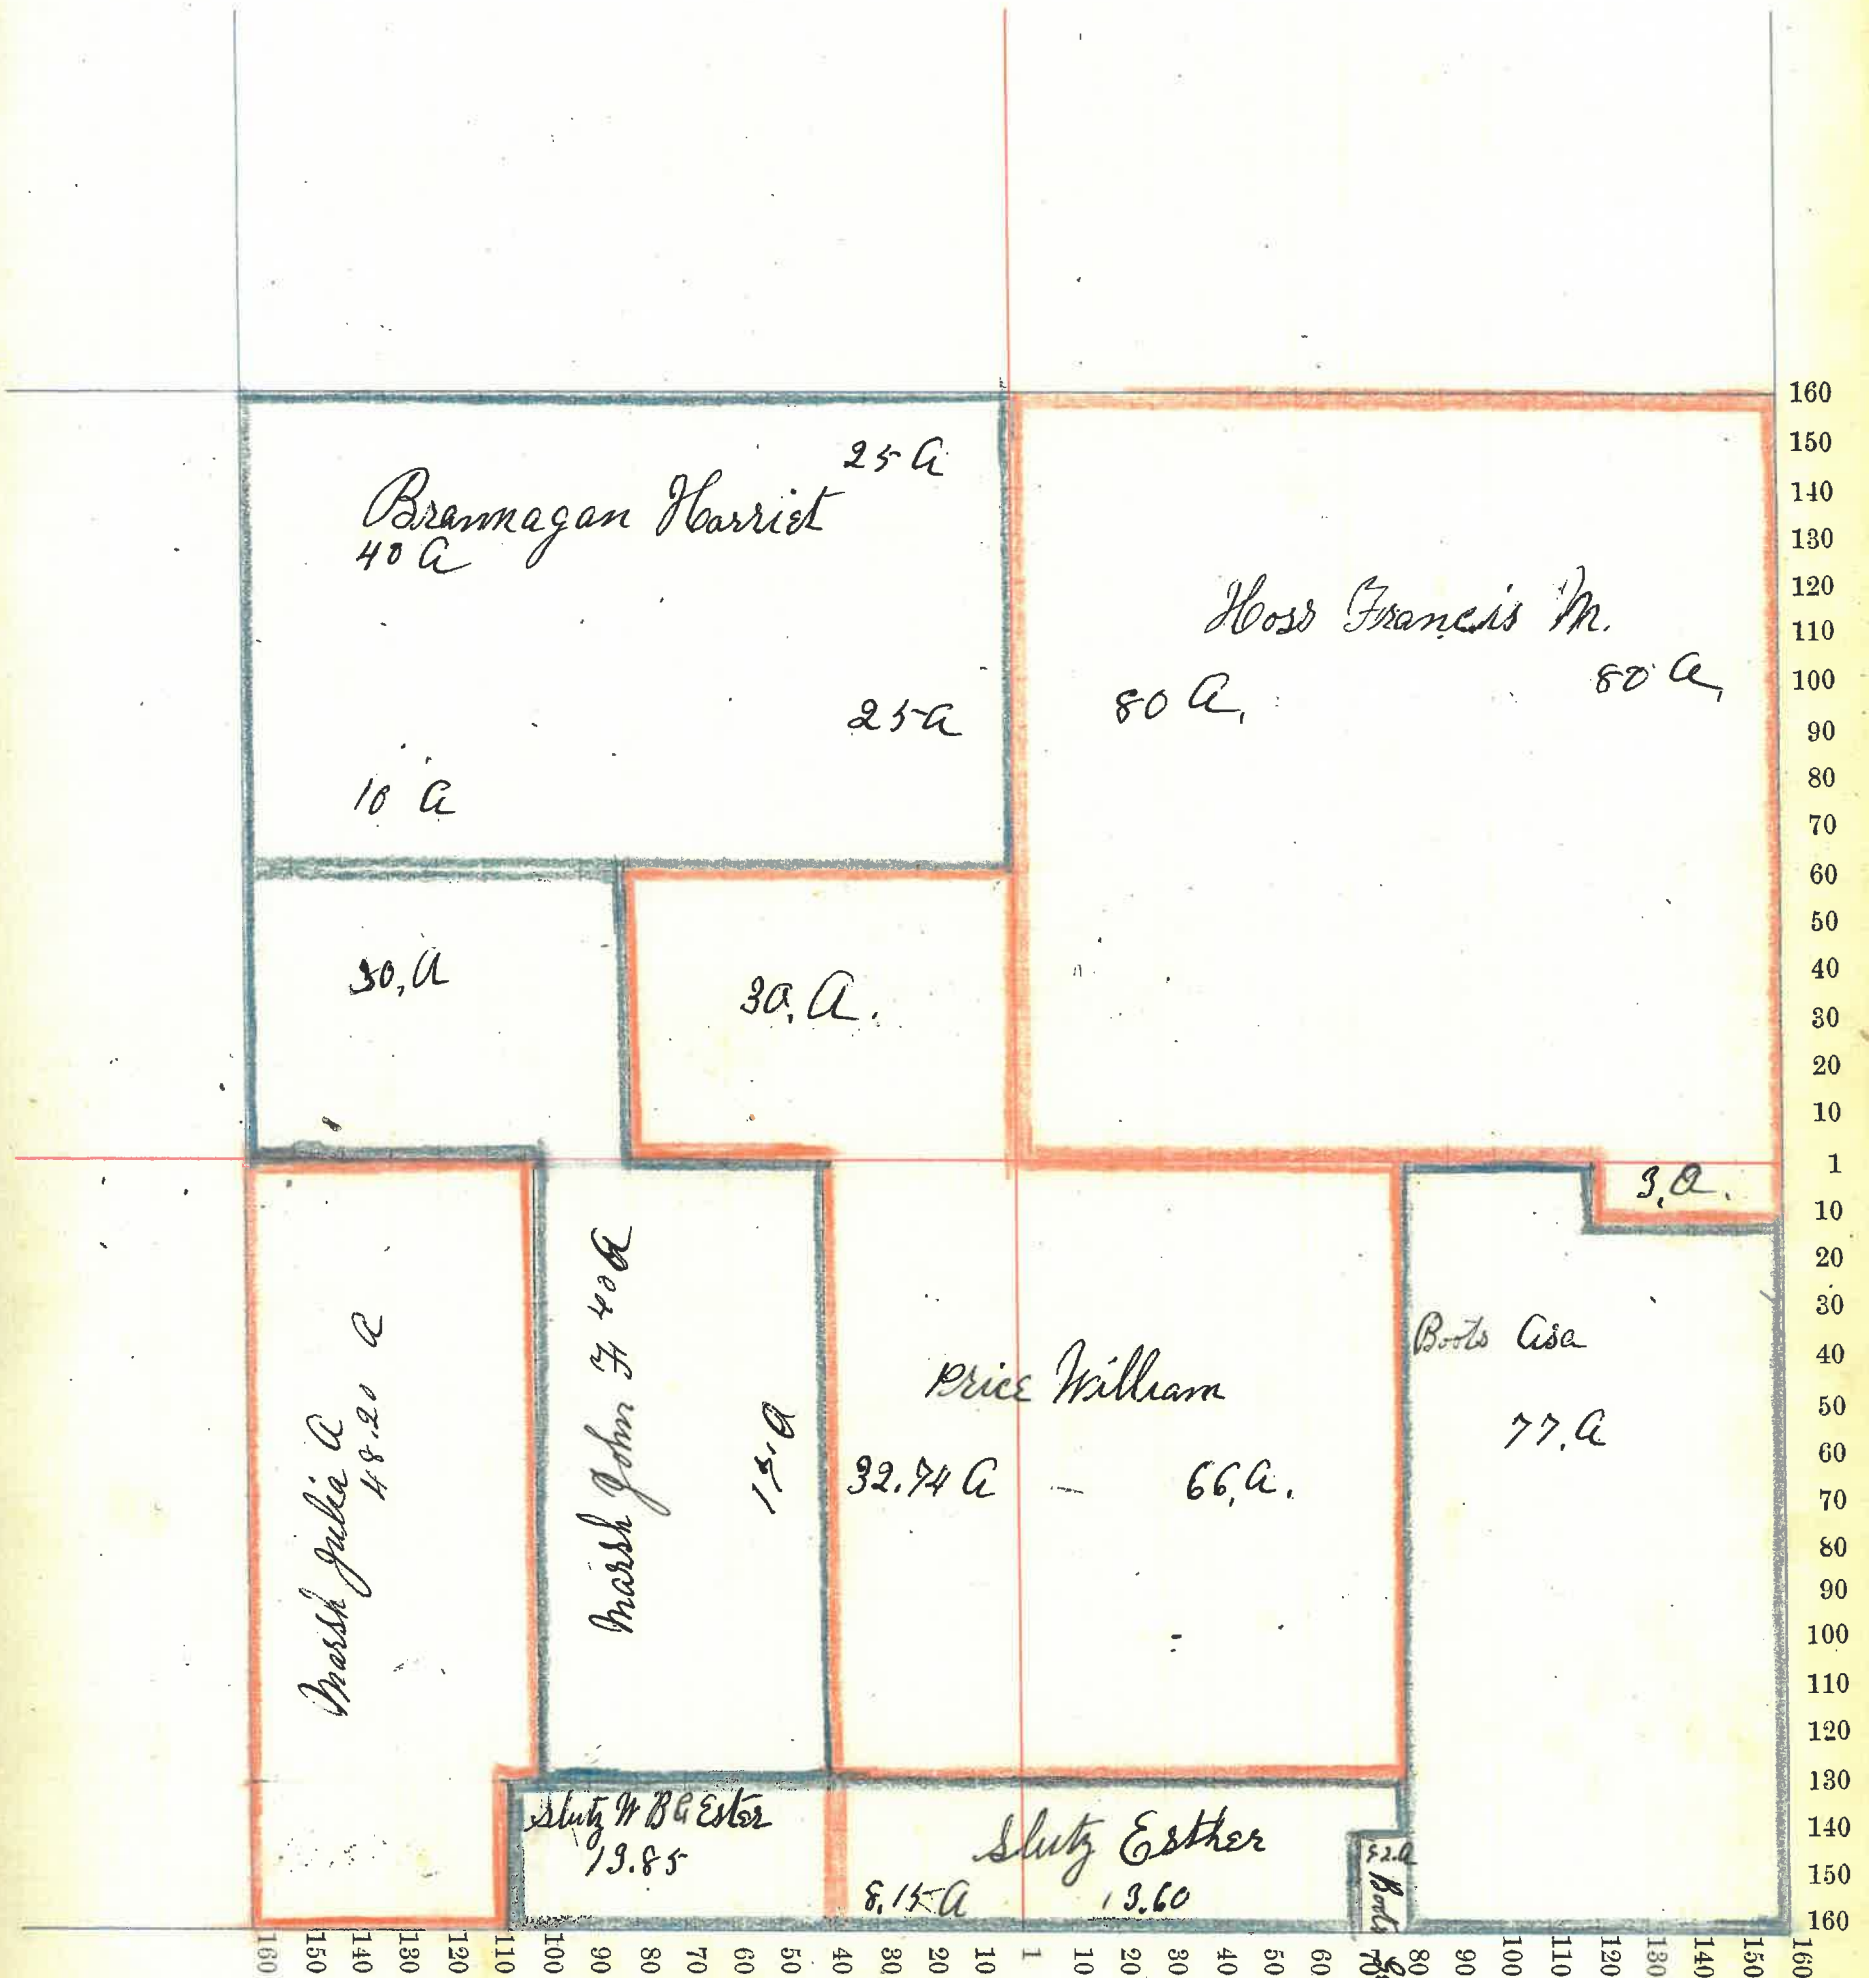 25 A
Brannagan Harriet
40 A
Hoss Francis M.
80 A.
80 A.
25 A
10 A
30, A
30, A.
3, A.
Marsh Julia A
48.20 A
Marsh John F 40 A
15 A
Price William
32.74 A
66, A.
Boots Asa
77. A
Slutz W B & Ester
13.85
Slutz Esther
8.15 A
13.60
Boots
160
150
140
130
120
110
100
90
80
70
60
50
40
30
20
10
1
10
20
30
40
50
60
70
80
90
100
110
120
130
140
150
160
160 150 140 130 120 110 100 90 80 70 60 50 40 30 20 10 1 10 20 30 40 50 60 70 80 90 100 110 120 130 140 150 160